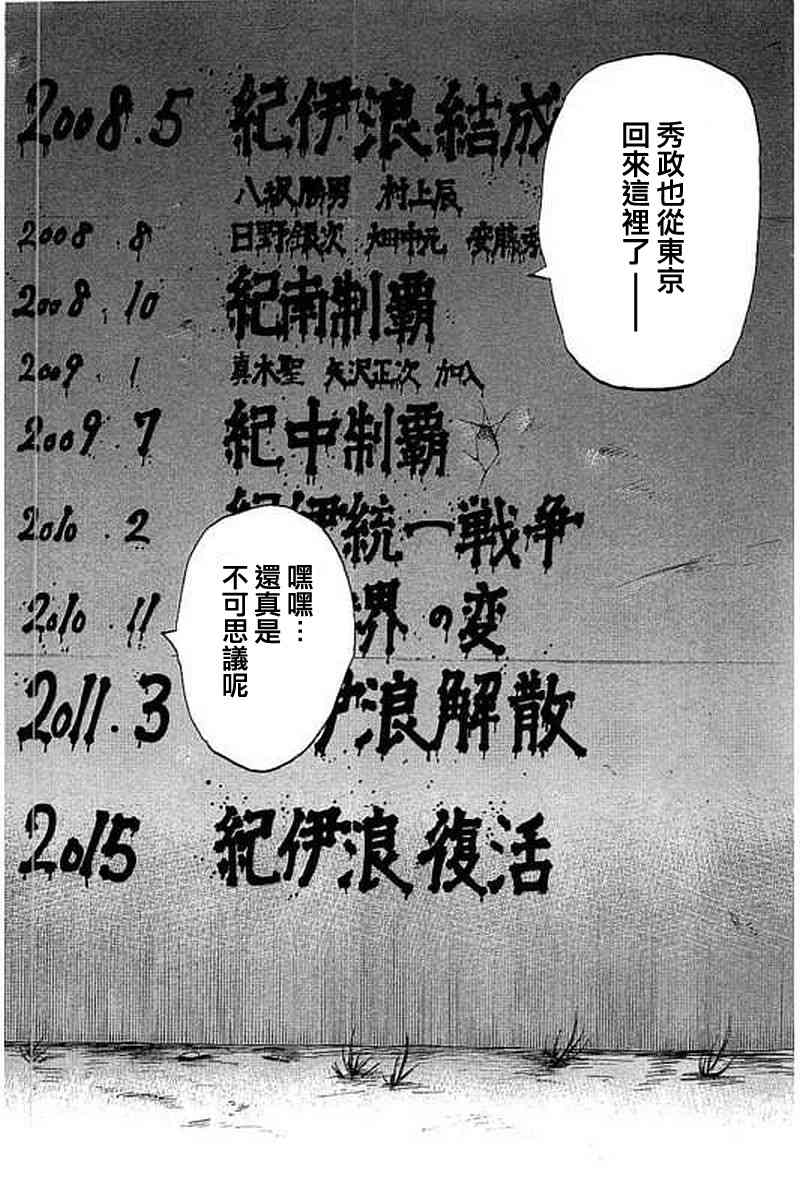 秀政也從東京
回來這裡了——
2008.5 紀伊浪結成
八坂勝男 村上辰
2008.8 日野銀次 畑中元 安藤秀
2008.10 紀南制覇
2009.1 真木聖 矢沢正次 加入
2009.7 紀中制覇
2010.2 紀伊統一戦争
2010.11 界の変
2011.3 伊浪解散
2015 紀伊浪復活
嘿嘿…
還真是
不可思議呢